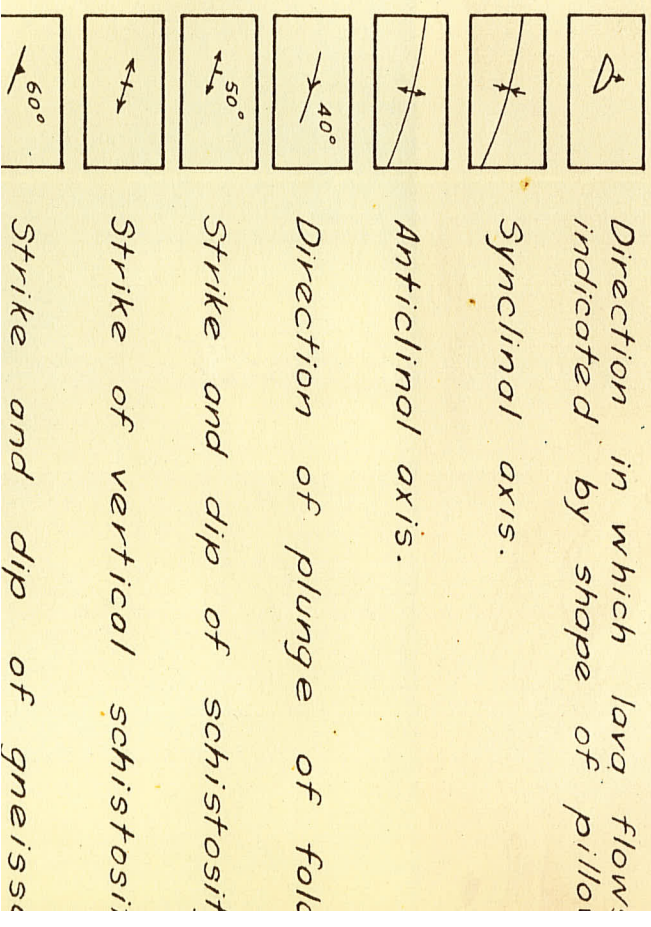 Direction in which lava flows
indicated by shape of pillow
Synclinal axis.
Anticlinal axis.
40°
Direction of plunge of fold
50°
Strike and dip of schistosit
Strike of vertical schistosi
60°
Strike and dip of gneiss